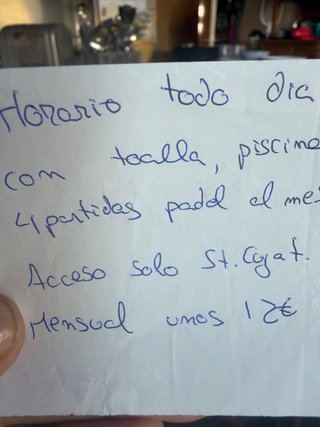 Horario todo dia
con toalla, piscina
4 partidas padel al mes
Acceso solo St. Cugat.
Mensual unos 12€